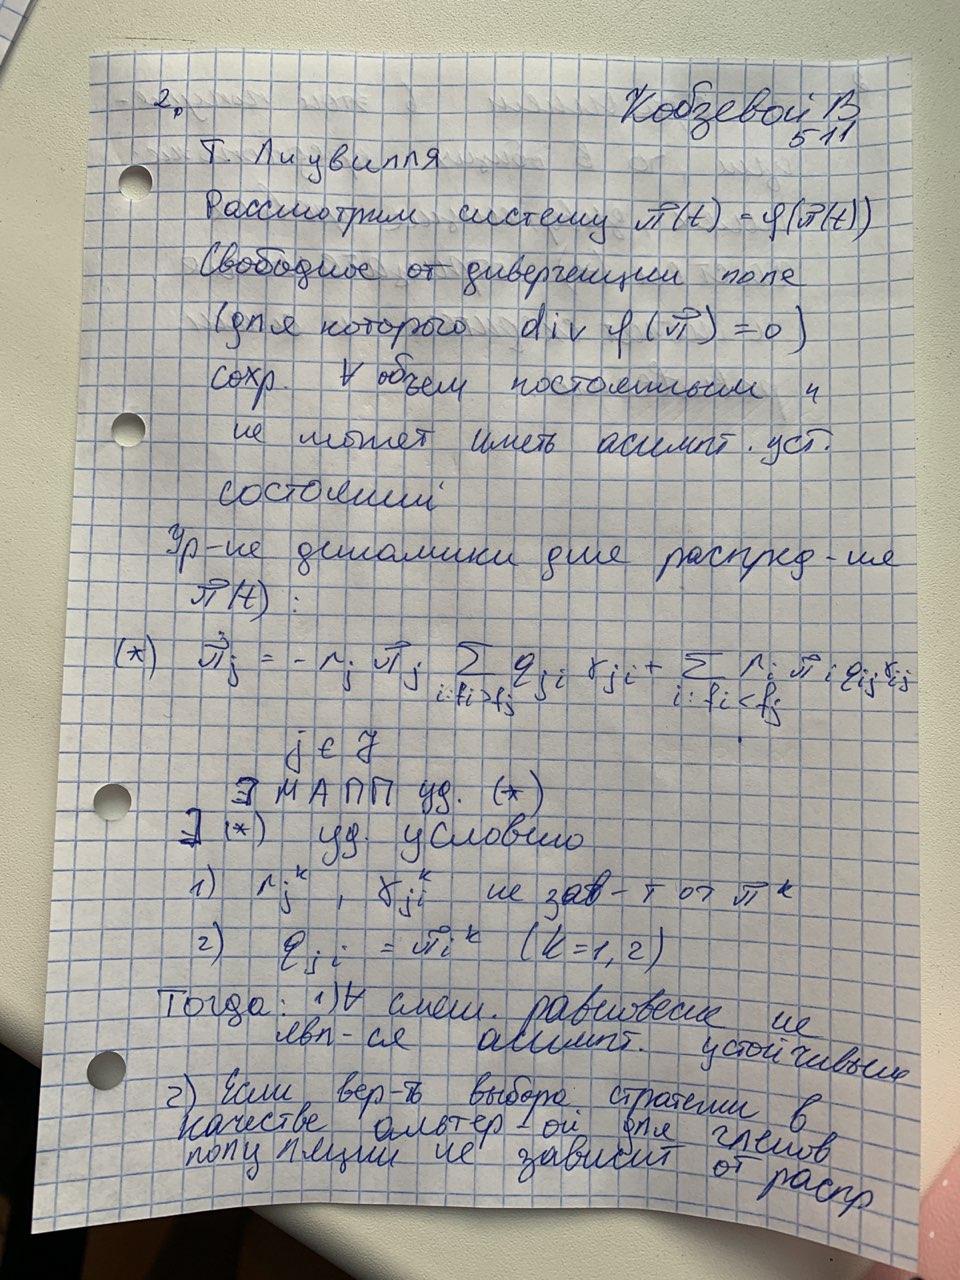 2.
Кобзевой В
511
Т. Лиувилля
Рассмотрим систему π⃗(t) = φ(π⃗(t))
Свободное от дивергенции поле
(для которого div φ(π⃗) = 0)
сохр. ∀ объем постоянным и
не может иметь асимпт. уст.
состояний
Ур-ие динамики для распред-ия
π⃗(t) :
(*) π̇⃗j = - rj π⃗j ∑ i:fi>fj qji γji + ∑ i:fi<fj ri π⃗i qij γij
j ∈ J
∃ МАПП уд. (*)
∃ (*) уд. условию
1) rj^k , γji^k не зав-т от π^k
2) qji = π⃗i^k (k=1,2)
Тогда: 1) ∀ смеш. равновесие не
явл-ся асимпт. устойчивым
2) Если вер-ть выбора стратегии в
качестве альтер-ой для членов
популяции не зависит от распр